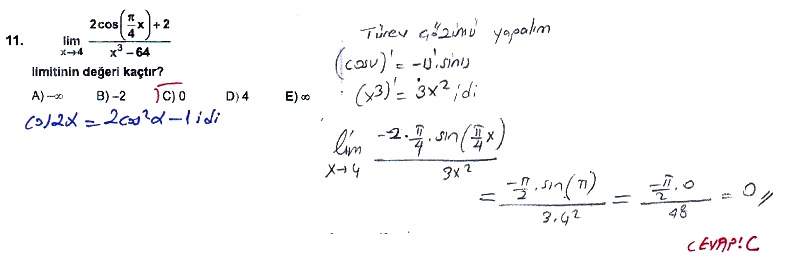 11. lim x→4 (2cos(π/4 x) + 2) / (x³ − 64)
limitinin değeri kaçtır?
A) −∞ B) −2 C) 0 D) 4 E) ∞
cos2α = 2cos²α − 1 idi
Türev çözümü yapalım
(cosu)' = −u'.sinu
(x3)' = 3x² idi
lim x→4 (−2.π/4.sin(π/4 x)) / 3x²
= (−π/2.sin(π)) / 3.4² = (−π/2.0) / 48 = 0 //
CEVAP: C